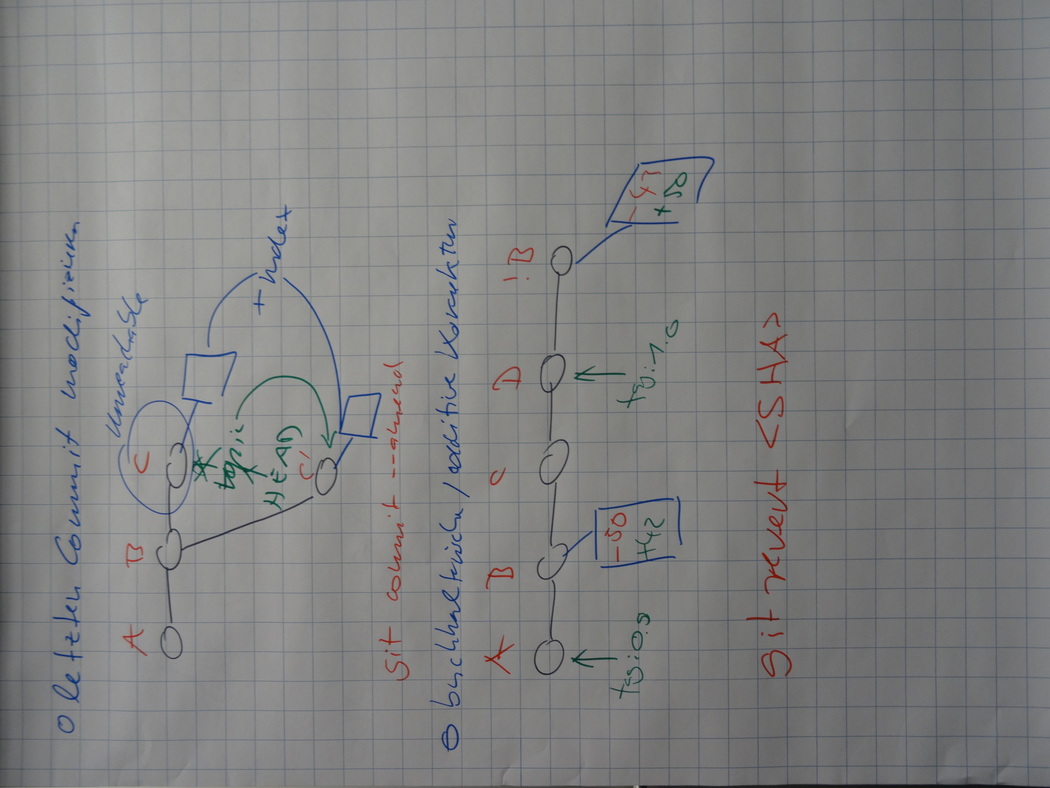 letzten Commit modifizieren
unreachable
A B C
topic
HEAD
+ Index
C'
git commit --amend
buchhalterische / additive Korrektur
A B C D !B
tag:0.9
-50
+42
tag:1.0
+50
git revert <SHA>